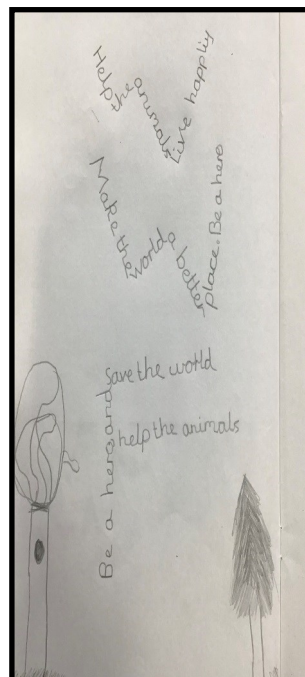 Help the animals Live happliy
Make the world a better place. Be a hero
Be a hero and save the world
help the animals